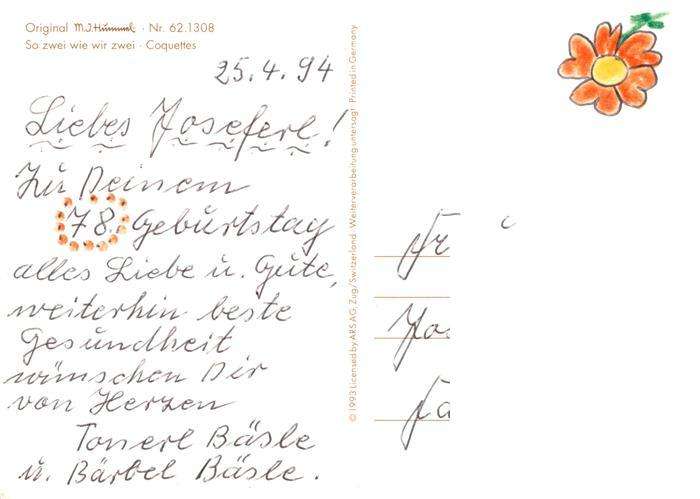 Original M.J.Hummel · Nr. 62.1308
So zwei wie wir zwei · Coquettes
25.4.94
Liebes Joseferl!
Zu Deinem
78. Geburtstag
alles Liebe u. Gute,
weiterhin beste
Gesundheit
wünschen Dir
von Herzen
Tonerl Bäsle
u. Bärbel Bäsle.
© 1993 Licensed by ARS AG, Zug/Switzerland · Weiterverarbeitung untersagt · Printed in Germany
Fr
Jos